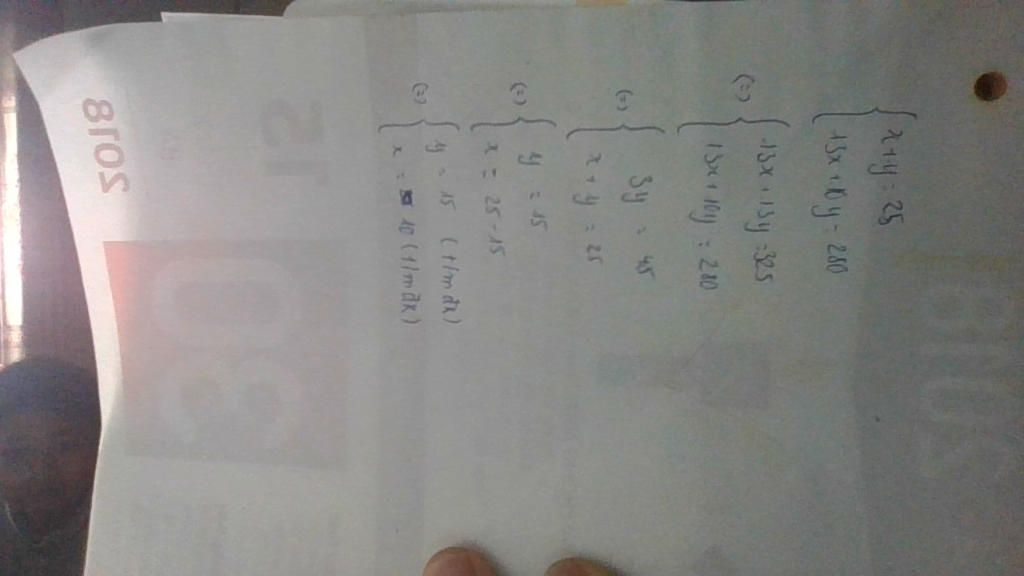 x + y = 25
13x + 10y = 280
(=) 13x + 13y = 325
13x + 10y = 280
(=) 3y = 45
x + y = 25
(=) y = 15
x = 25 - 15
(=) y = 15 (t/mđk)
x = 10 (t/mđk)
2018
15
30
2018